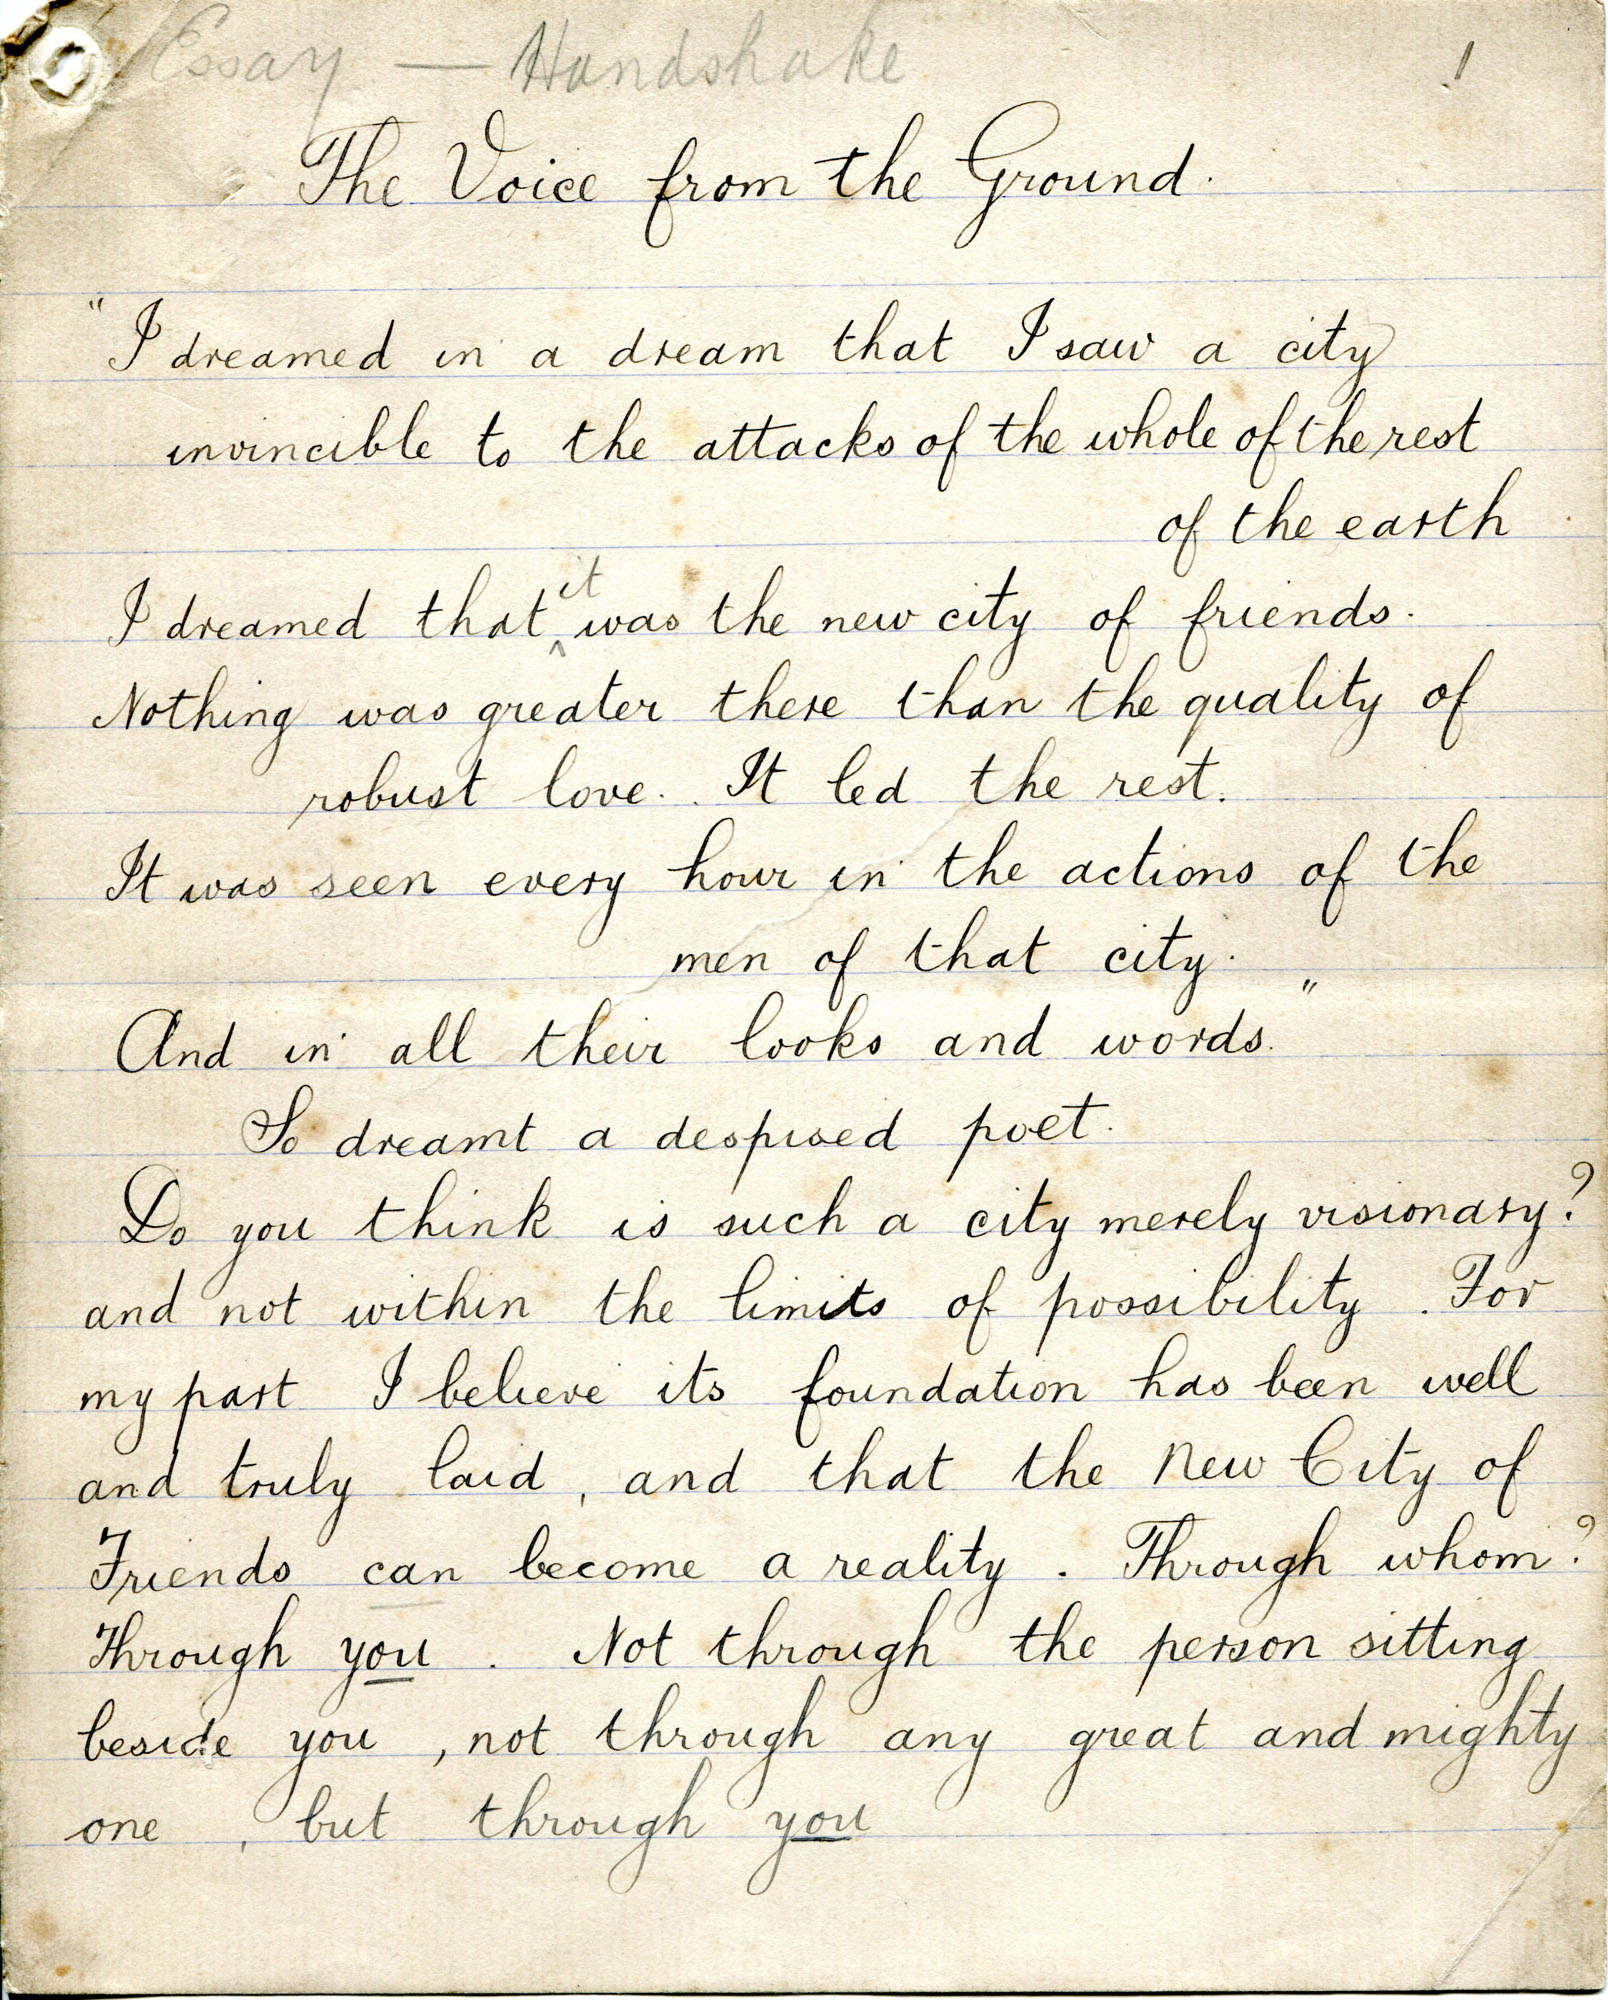 Essay — Handshake
1
The Voice from the Ground.
"I dreamed in a dream that I saw a city
invincible to the attacks of the whole of the rest
of the earth
it
I dreamed that ^ was the new city of friends.
Nothing was greater there than the quality of
robust love. It led the rest.
It was seen every hour in the actions of the
men of that city.
And in all their looks and words."
So dreamt a despised poet.
Do you think is such a city merely visionary?
and not within the limits of possibility. For
my part I believe its foundation has been well
and truly laid, and that the New City of
Friends can become a reality. Through whom?
Through you. Not through the person sitting
beside you, not through any great and mighty
one, but through you